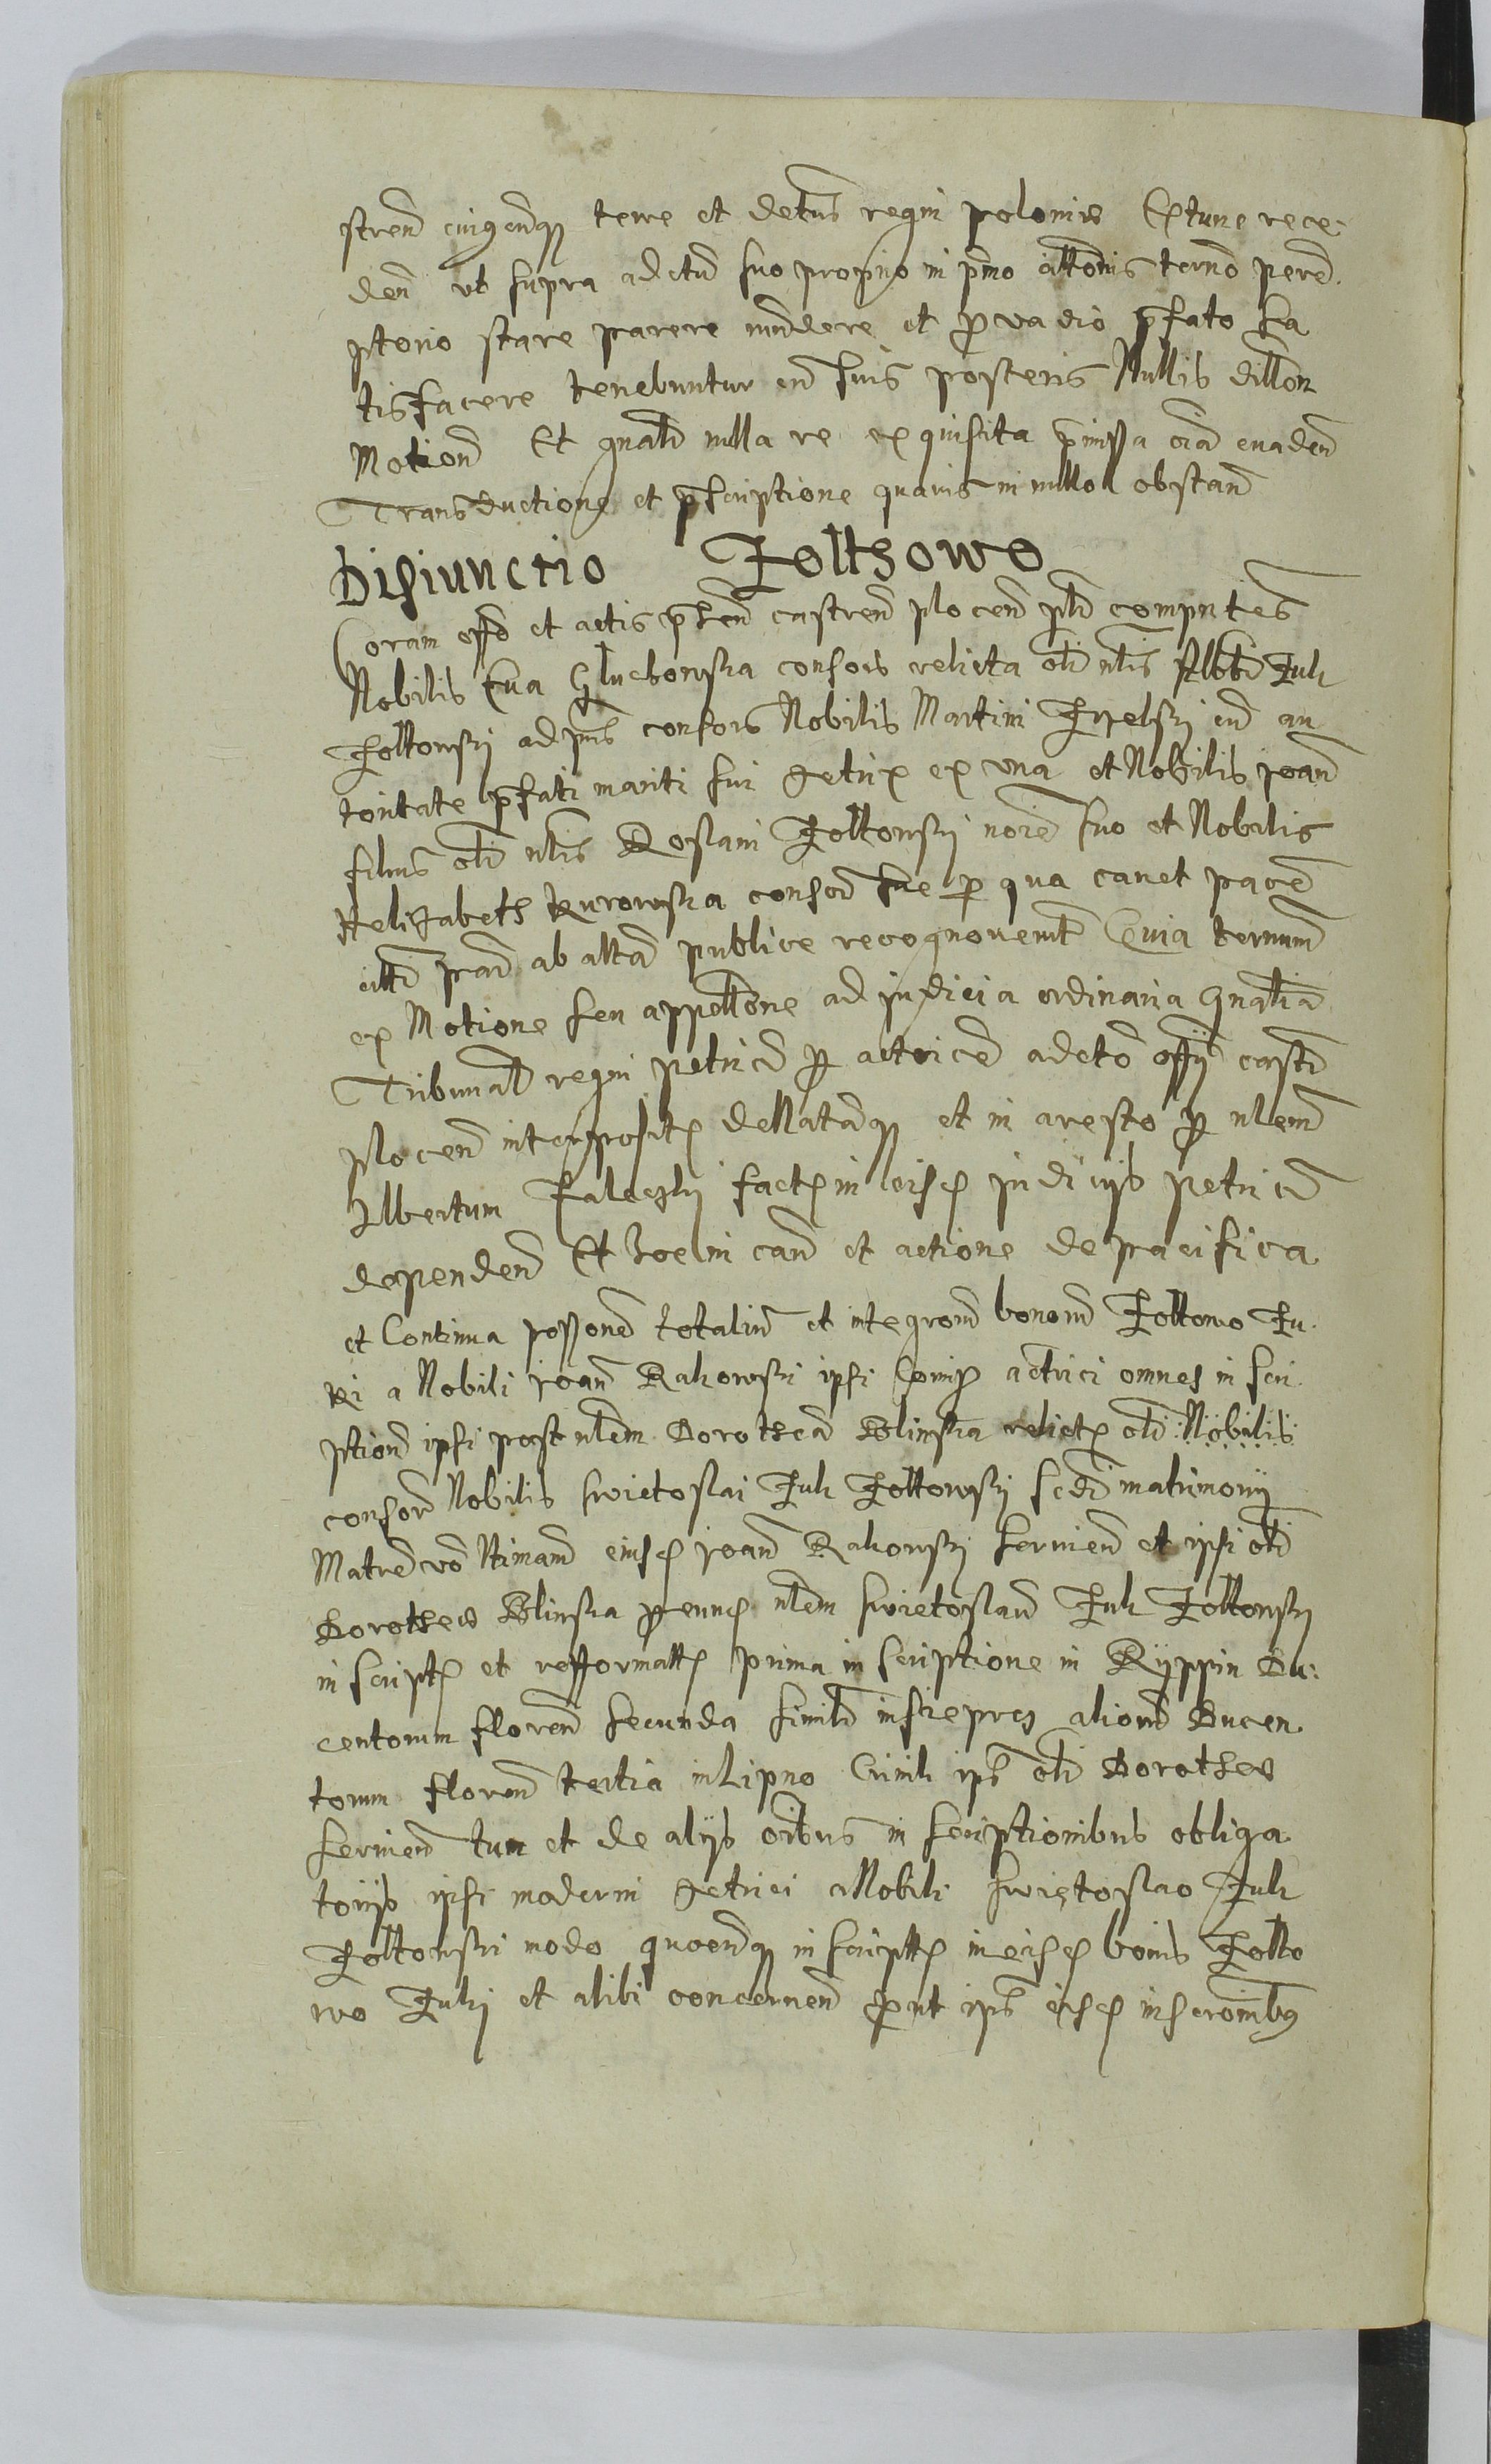 stren cuiuscunq terre et detus regni polonie Extunc rece:
den ut supra ad ctu suo proprio in pmo attonis termo pere
ptorio stare parere rundere et p vadio pfato sa
tisfacere tenebuntur cu suis posteris Nullis dillon
Motion Et gnali nulla re exquisita pmissa oia evaden
Transductione et pscriptione quavis in nullo obstan
Disiunctio Zolthowo
Coram offo et actis psen castren plocen plr comprntes
Nobilis Eva Gluchowska consors relicta oli nlis Alberti Zuk
Zoltowski ad pns consors Nobilis Martini cu au
toritate pfati mariti sui getrix ex una et Nobilis Joan
filius oli nlis Roslani Zoltowski noie suo et Nobilis
Helizabeth Kurowska consor sue p qua cavet pace
altr prad ab altra publice recognoverut Quia termnum
ex Motione seu appellone ad judicia ordinaria Gnalia
Tribunal regni petricn p actrice ad cto offy castr
plocen interposit dellatasq et in aresto p nlem
Albertum Zaleski fact in eisd judicijs petricn
dependen Et hoc in cau et actione de pacifica
et Continua possone totaliu et integroru bonoru Zoltowo Zu
ki a Nobili Joan Rakowski ipsi Comp actrici omnes in scri
ption ipsi post nlem Dorothea Blinska relict oli Nobilis
consor Nobilis Swietoslai Zuk Zoltowski scdi matrimonij
Matre vo Rtimam eiusd Joan Rakowski servien et ipsi oli
Dorotheo Blinska p eund nlem Swietoslau Zuk Zoltowski
in script et refformatt prima in scriptione in Ryppin Du:
centorum floren secunda simili aliord Ducen
torum floren tertia in Lipno Cimili ips oli Dorotheo
servien tum et de alijs oibus in scriptionibus obliga
torijs ipsi moderni getrici a Nobili Swietoslao Zuk
Zoltowski modo quocunq in script in eisd bonis Zolto
wo Zuki et alibi concernen put ips eisd inscronibus